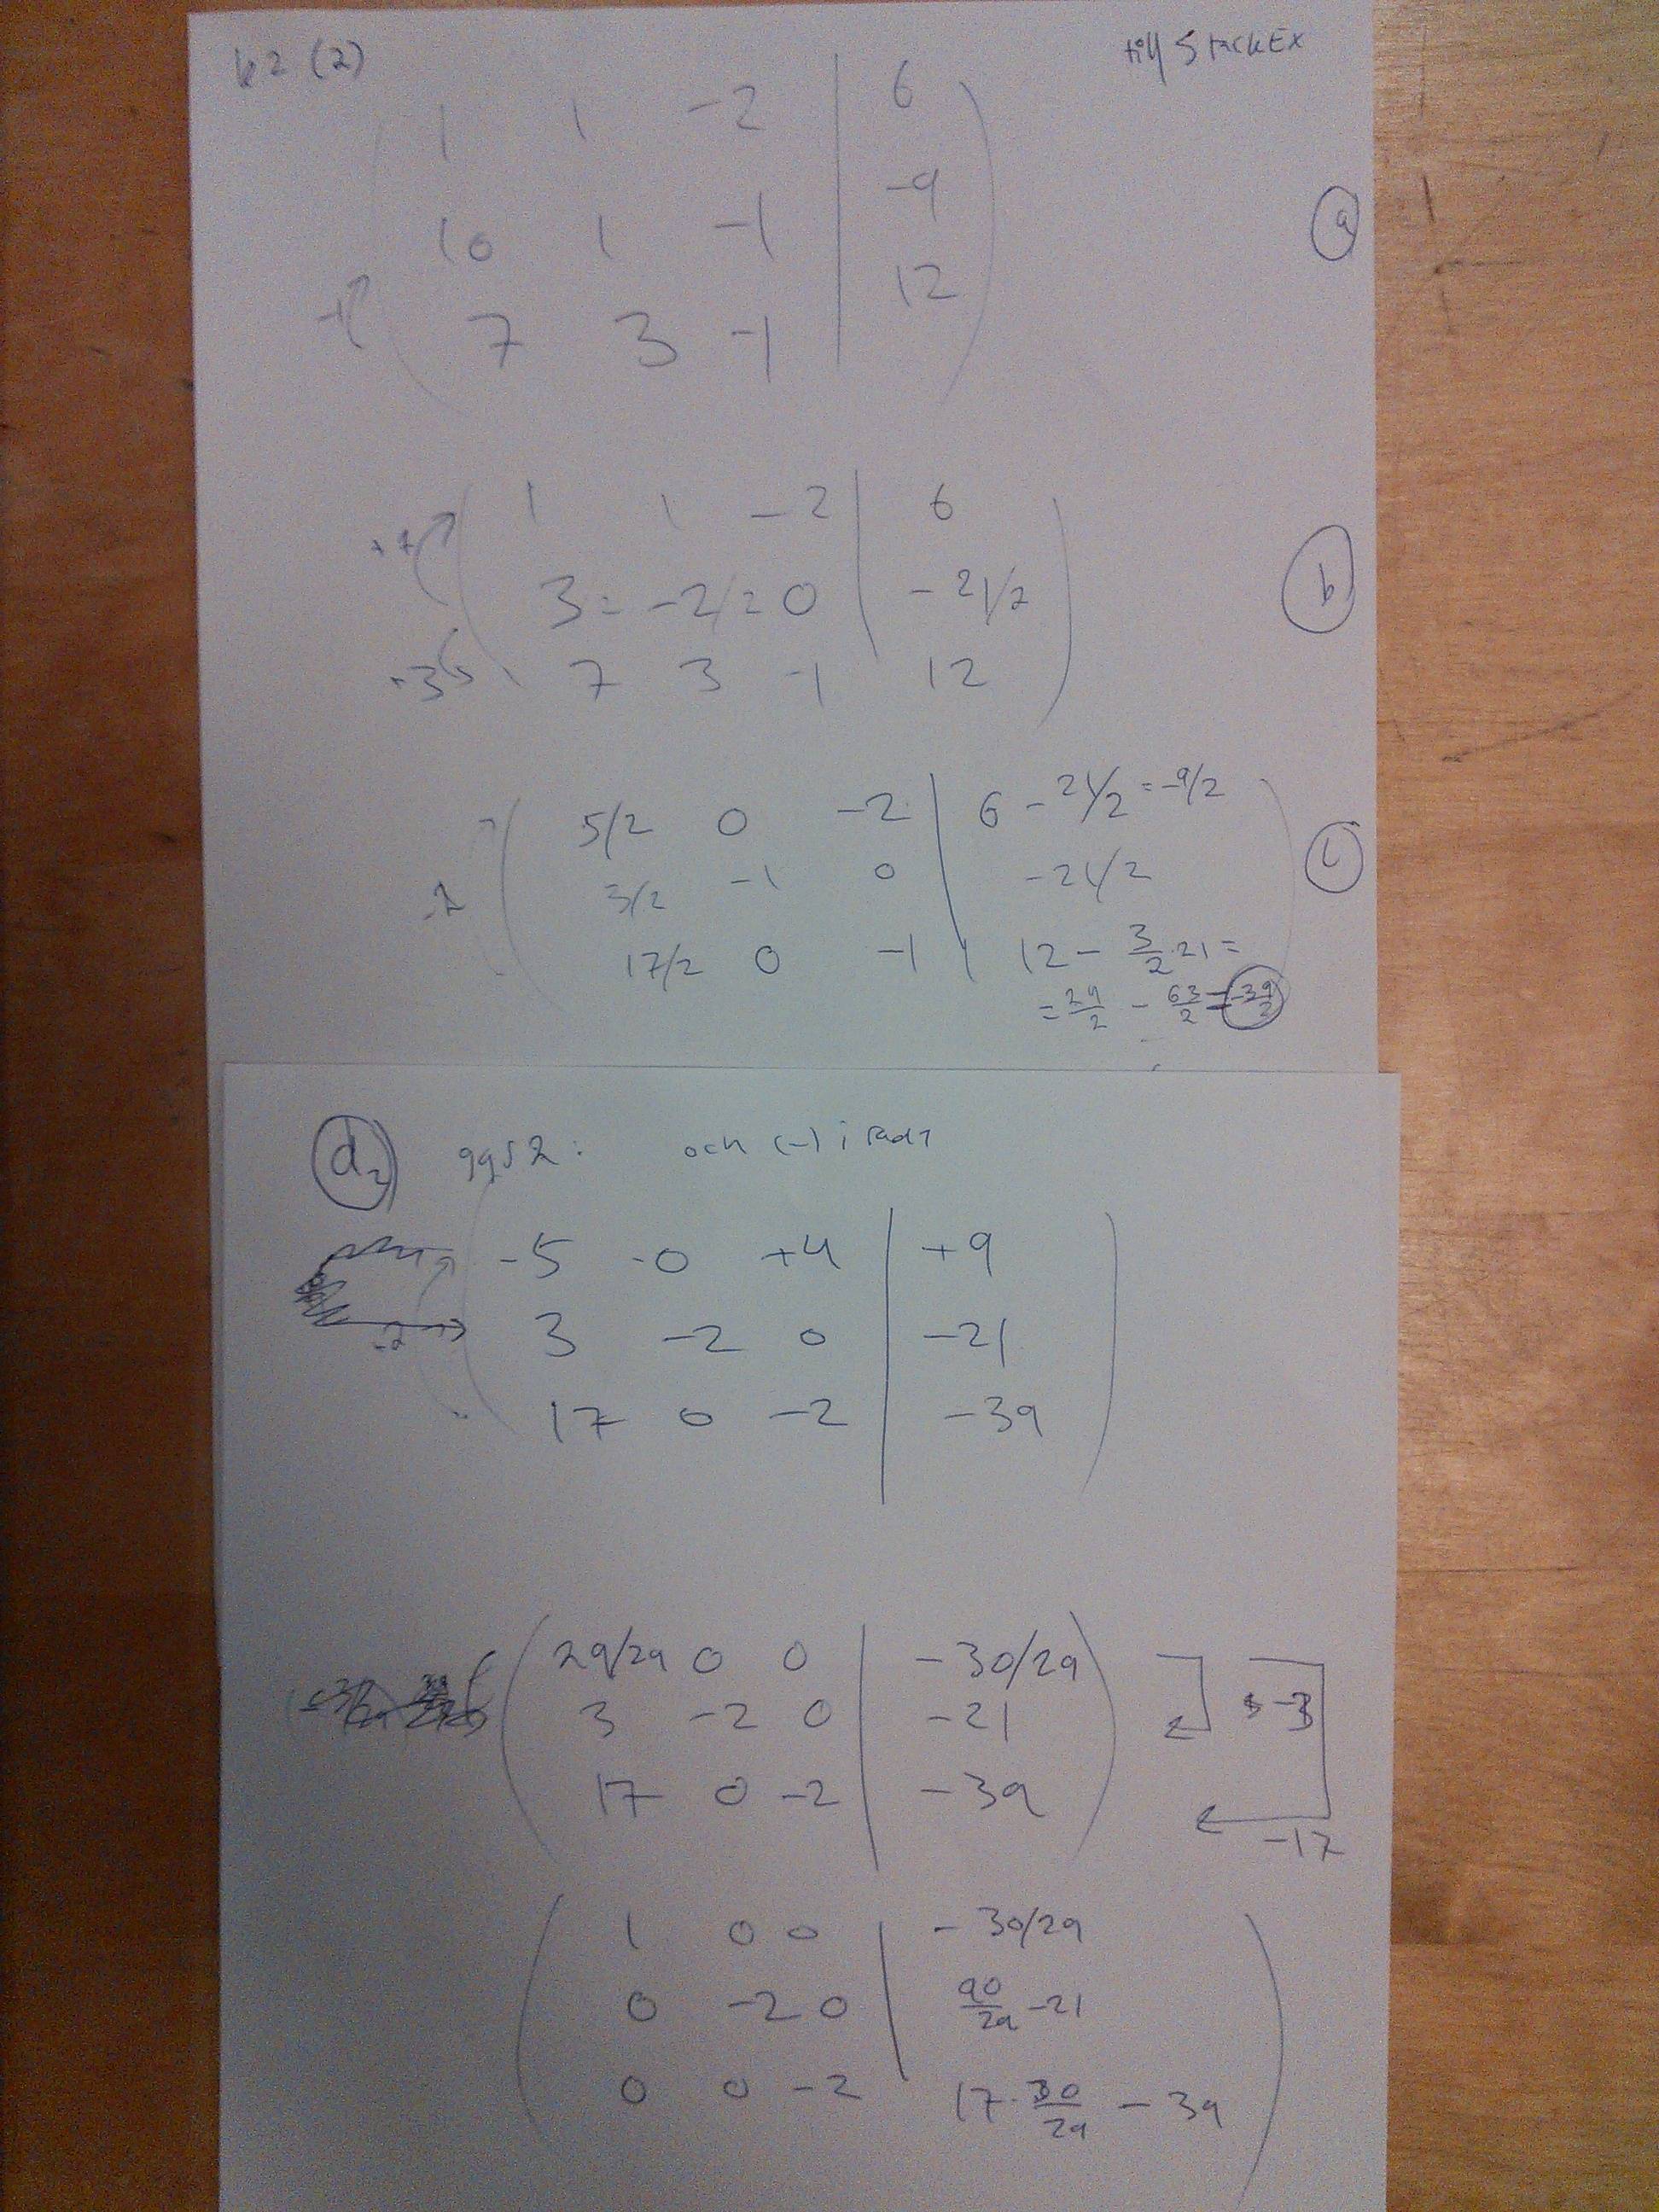 k2 (2) till StackEx
1 1 -2 | 6
10 1 -1 | -9
7 3 -1 | 12
a
1 1 -2 | 6
3= -2/= 0 | -21/2
7 3 -1 | 12
b
5/2 0 -2 | 6 - 21/2 = -9/2
3/2 -1 0 | -21/2
17/2 0 -1 | 12 - 3/2 · 21 =
= 24/2 - 63/2 = -39/2
d2 ggr 2: och (-) i rad 1
-5 -0 +4 | +9
-2 3 -2 0 | -21
17 0 -2 | -39
29/29 0 0 | -30/29
3 -2 0 | -21 -3
17 0 -2 | -39
-17
1 0 0 | -30/29
0 -2 0 | 90/29 - 21
0 0 -2 17 · 30/29 - 39